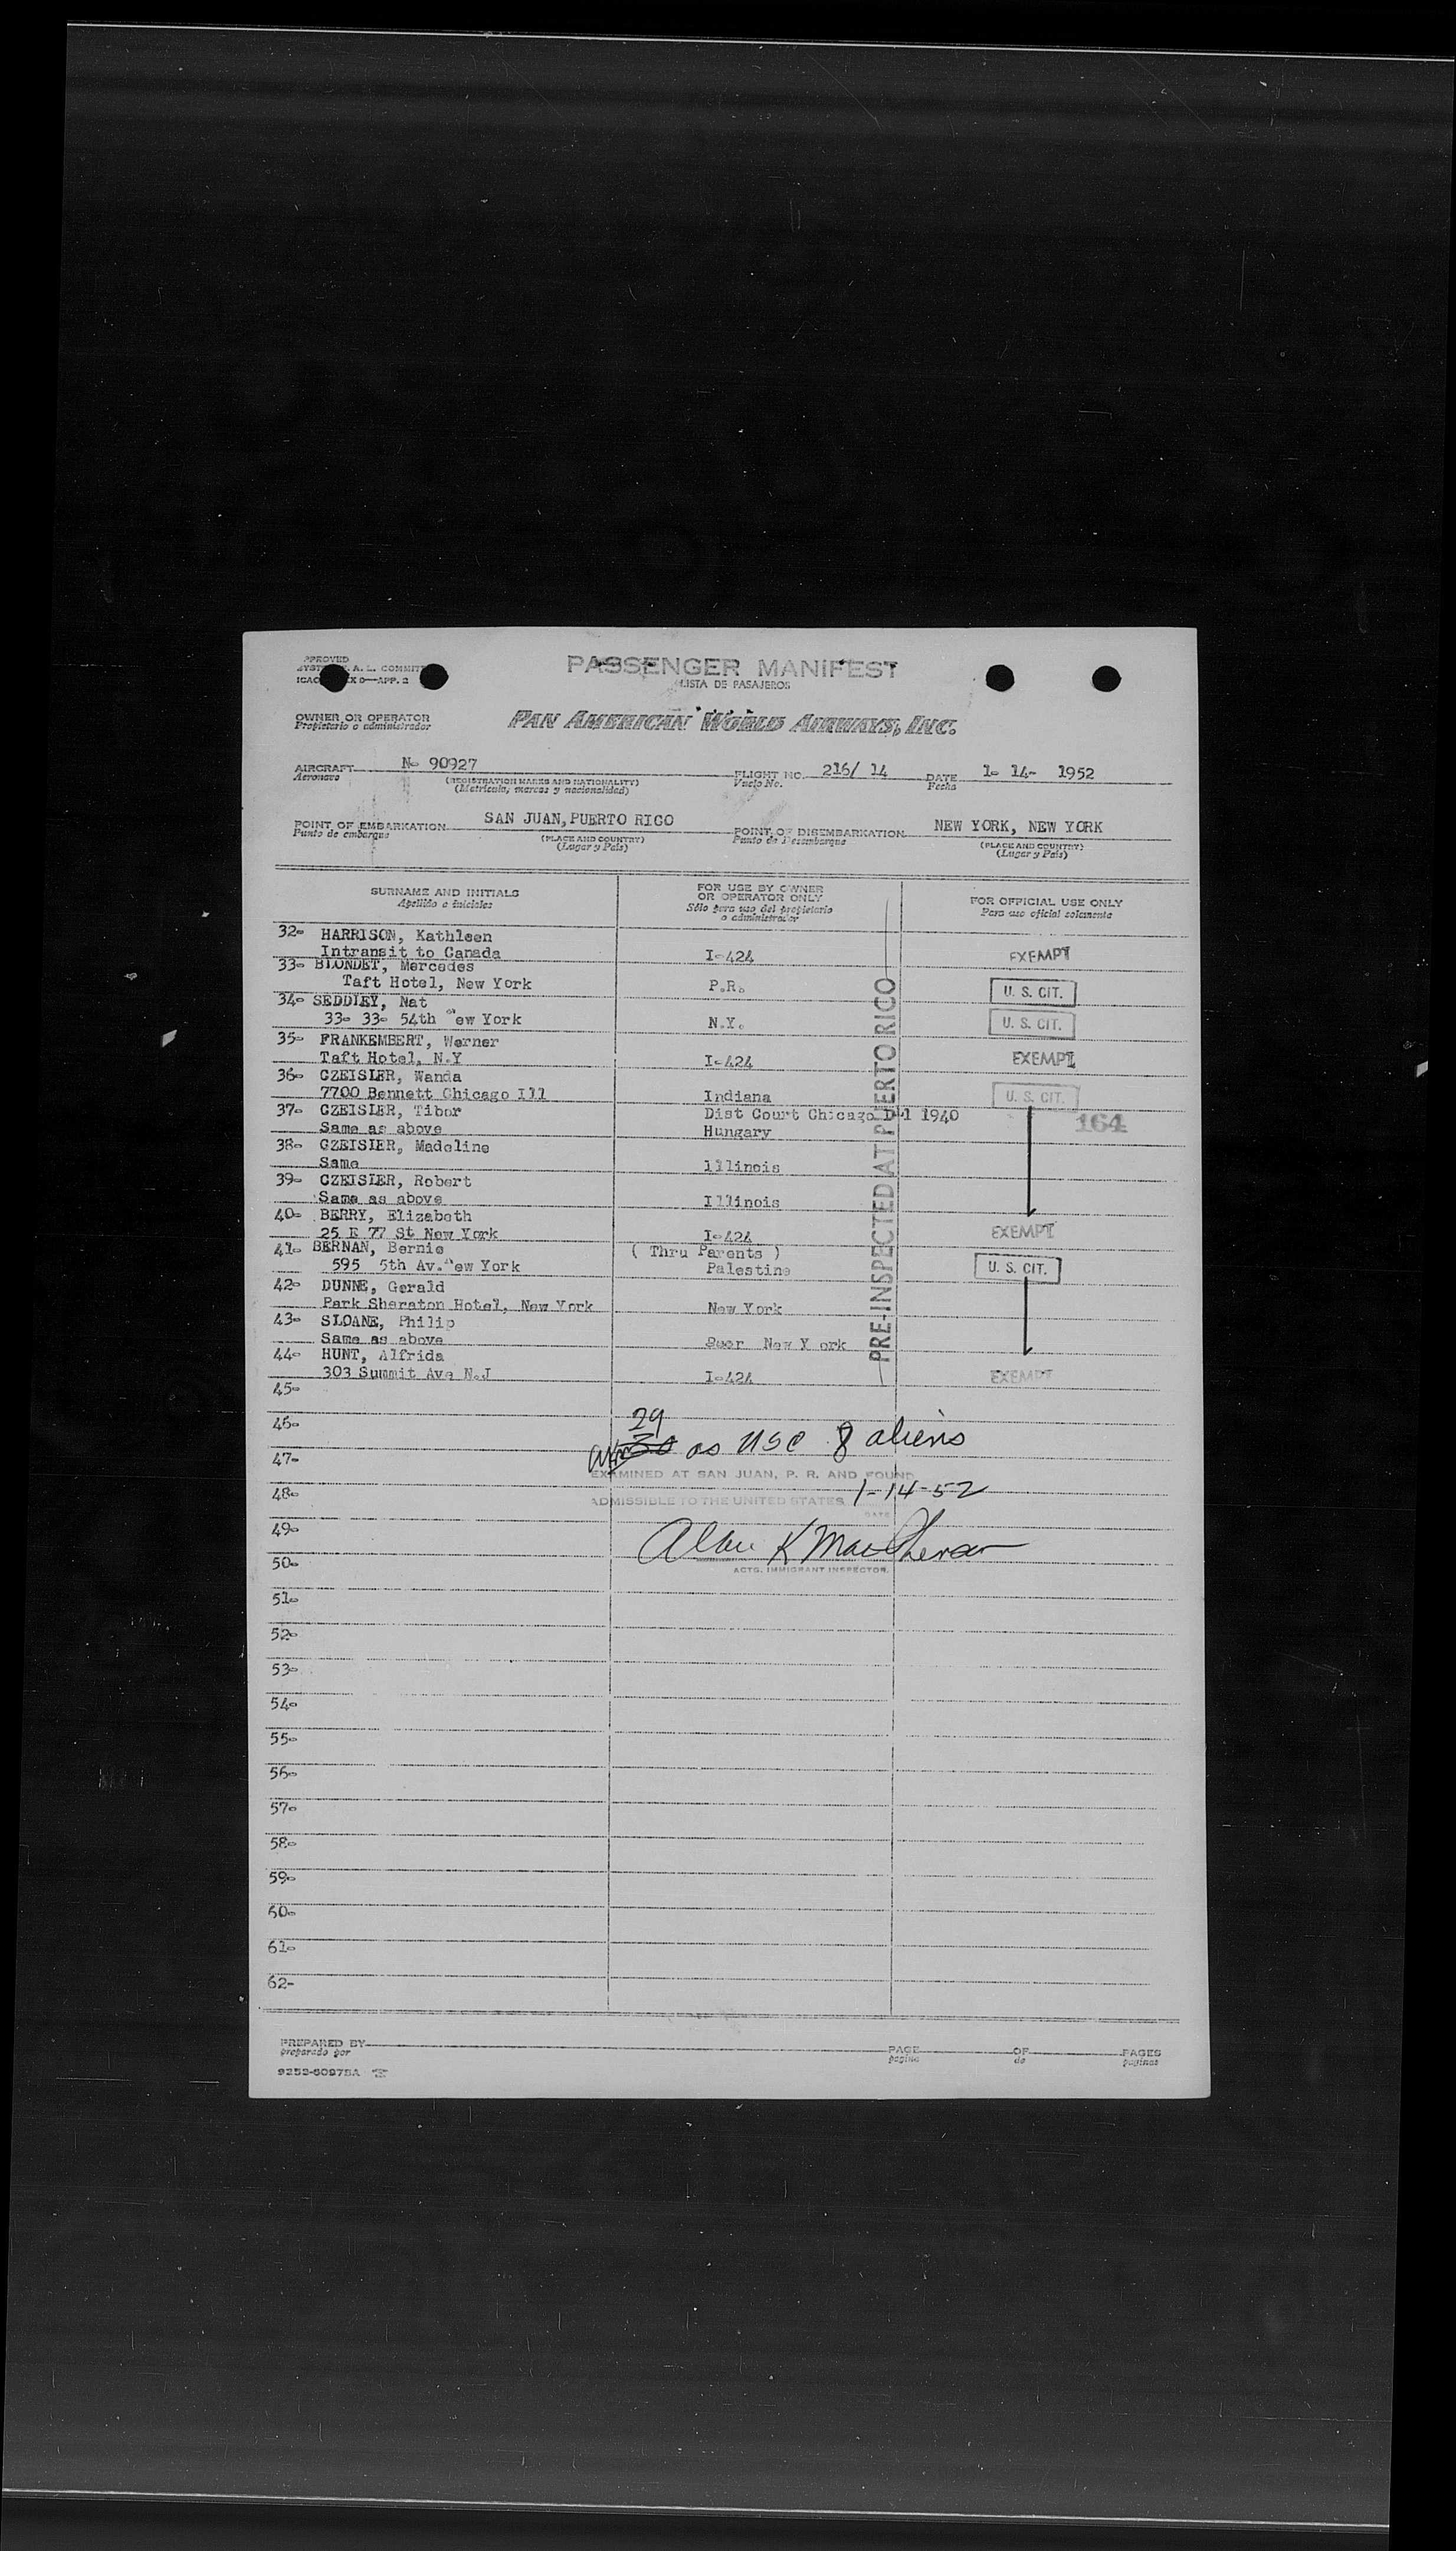 PPROVED
A. L. COMMIT
ICAO X 9—APP. 2
PASSENGER MANIFEST
LISTA DE PASAJEROS
OWNER OR OPERATOR
Propietario o administrador
PAN AMERICAN WORLD AIRWAYS, INC.
AIRCRAFT N- 90927 FLIGHT NO. 216/ 14 DATE 1- 14- 1952
Aeronave (REGISTRATION MARKS AND NATIONALITY) Vuelo No. Fecha
(Matrícula, marcas y nacionalidad)
POINT OF EMBARKATION SAN JUAN,PUERTO RICO POINT OF DISEMBARKATION NEW YORK, NEW YORK
Punto de embarque (PLACE AND COUNTRY) Punto de Desembarque (PLACE AND COUNTRY)
(Lugar y País) (Lugar y País)
SURNAME AND INITIALS FOR USE BY OWNER OR OPERATOR ONLY FOR OFFICIAL USE ONLY
Apellido e iniciales Sólo para uso del propietario o administrador Para uso oficial solamente
32- HARRISON, Kathleen
Intransit to Canada I-424 EXEMPT
33- BLONDET, Mercedes
Taft Hotel, New York P.R. U. S. CIT.
34- SEDDLEY, Nat
33- 33- 54th ew York N.Y. U. S. CIT.
35- FRANKEMBERT, Werner
Taft Hotel, N.Y I-424 EXEMPT
36- CZEISLER, Wanda
7700 Bennett Chicago Ill Indiana U. S. CIT.
37- CZEISLER, Tibor Dist Court Chicago 1940 164
Same as above Hungary
38- CZEISLER, Madeline
Same Illinois
39- CZEISLER, Robert
Same as above Illinois
40- BERRY, Elizabeth
25 E 77 St New York I-424 EXEMPT
41- BERNAN, Bernie ( Thru Parents )
595 5th Av. ew York Palestine U. S. CIT.
42- DUNNE, Gerald
Park Sheraton Hotel, New York New York
43- SLOANE, Philip
Same as above New Y ork
44- HUNT, Alfrida
303 Summit Ave N.J I-424 EXEMPT
PRE-INSPECTED AT PUERTO RICO
45-
46- 29
30 as USC 8 aliens
47-
EXAMINED AT SAN JUAN, P. R. AND FOUND
48- ADMISSIBLE TO THE UNITED STATES 1-14-52
DATE
49-
Alan K MacPherson
50- ACTG. IMMIGRANT INSPECTOR.
51-
52-
53-
54-
55-
56-
57-
58-
59-
60-
61-
62-
PREPARED BY PAGE OF PAGES
preparado por pagina de paginas
9252-60975A